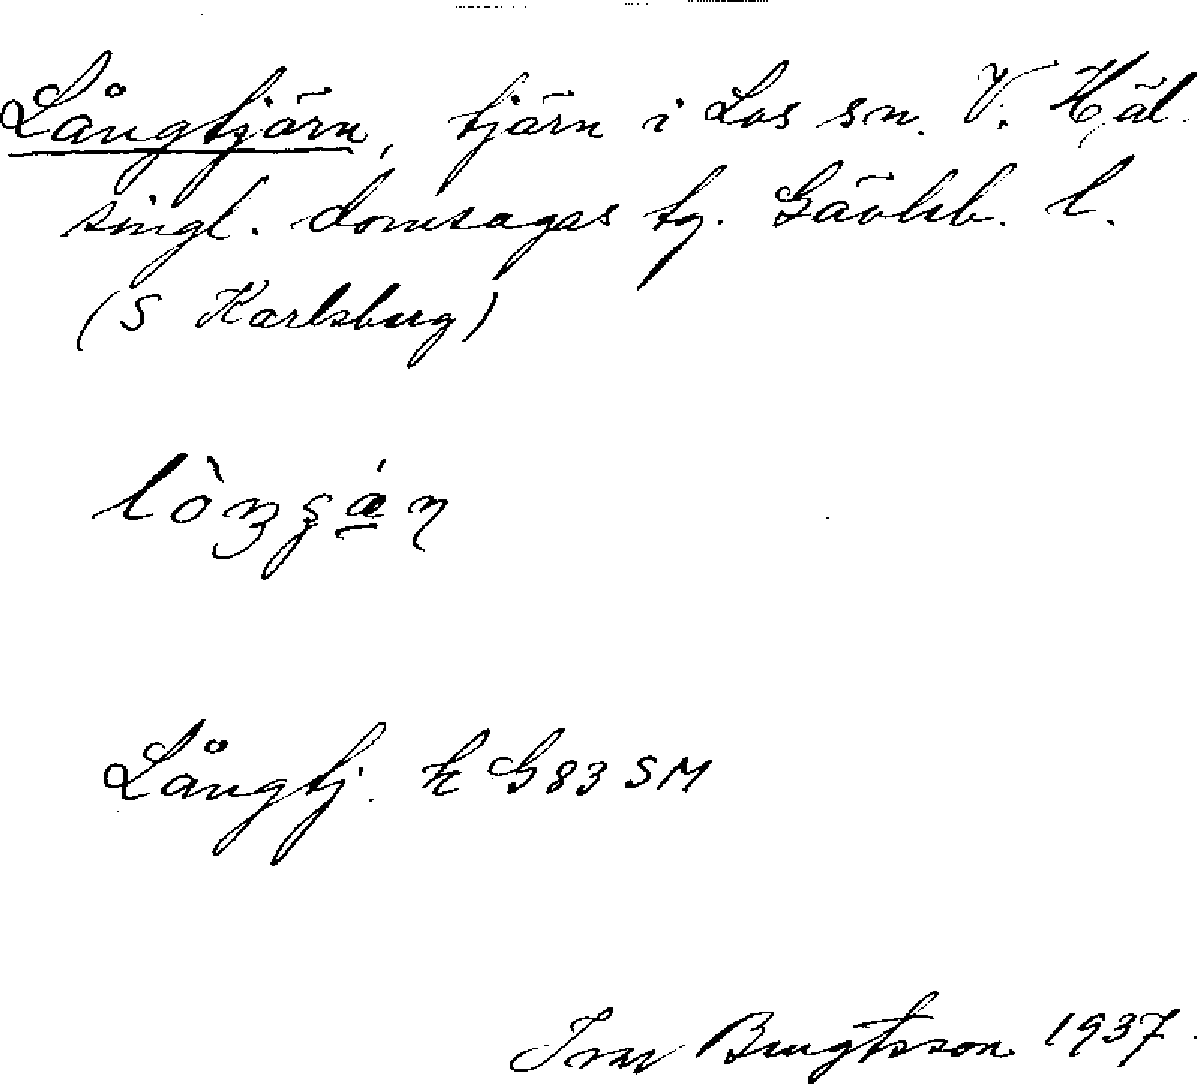 Långtjärn, tjärn i Los sn. V. Häl-
singl. domsagas tg. Gävleb. l.
(S Karlsberg)
Långtj. k G83 SM
Ivar Bengtsson 1937.